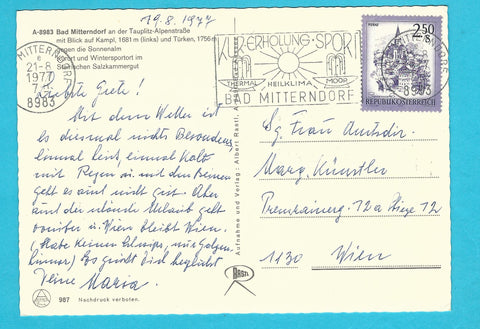 19.8.1977
A-8983 Bad Mitterndorf an der Tauplitz-Alpenstraße
mit Blick auf Kampl, 1681 m (links) und Türken, 1756 m
gegen die Sonnenalm
ort und Wintersportort im
steirischen Salzkammergut
MITTERNDORF
21-8
1977
8983
KUR·ERHOLUNG·SPORT
THERMAL HEILKLIMA MOOR
BAD MITTERNDORF
2,50
REPUBLIK ÖSTERREICH
8983
Liebste Grete!
Mit dem Wetter ist
es diesmal nichts Besonderes
einmal heiß, einmal kalt
mit Regen u. mit den Beinen
geht es auch nicht gut. Aber
auch der Urlaub geht
vorüber u. Wien bleibt Wien.
(Habe keinen Schnaps, nur
) Es grüßt Dich
Deine Maria.
Sg. Frau Amtsdir.
Marg. Künstler
12a Stiege 12
1130 Wien
Aufnahme und Verlag: Albert Rastl,
RASTL
987 Nachdruck verboten.